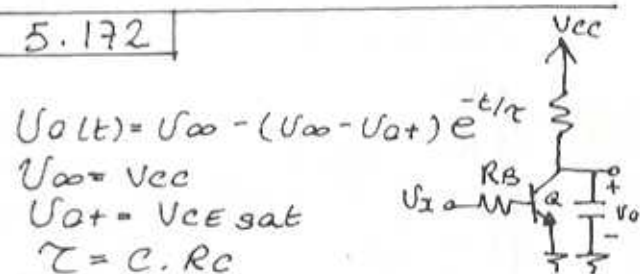 5.172
VCC
Uo(t) = U∞ - (U∞ - U0+) e^-t/τ
U∞ = VCC
U0+ = VCE sat
τ = C . RC
RB
UI
Q
+
vo
-